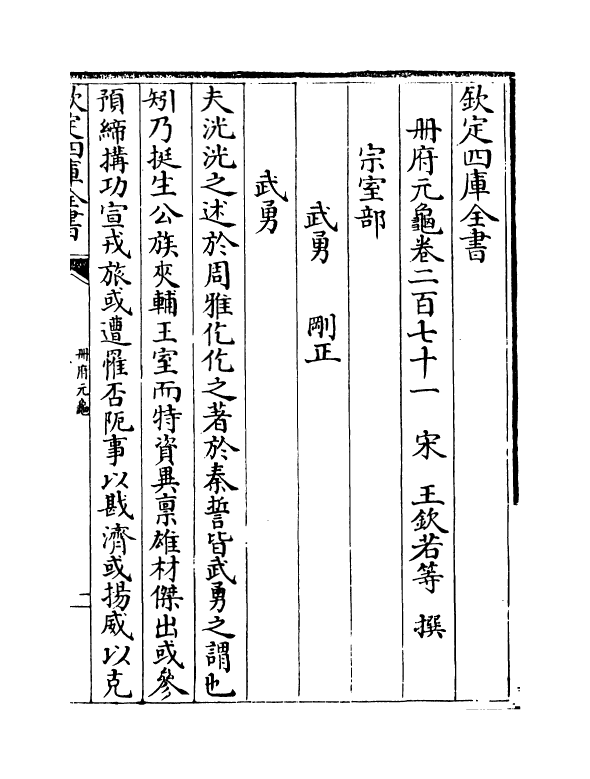 欽定四庫全書
册府元龜卷二百七十一　宋　王欽若等　撰
宗室部
武勇　剛正
武勇
夫洸洸之述於周雅仡仡之著於秦誓皆武勇之謂也
矧乃挺生公族夾輔王室而特資異禀雄材傑出或參
預締搆功宣戎旅或遭罹否阨事以戡濟或揚威以克
欽定四庫全書
册府元龜